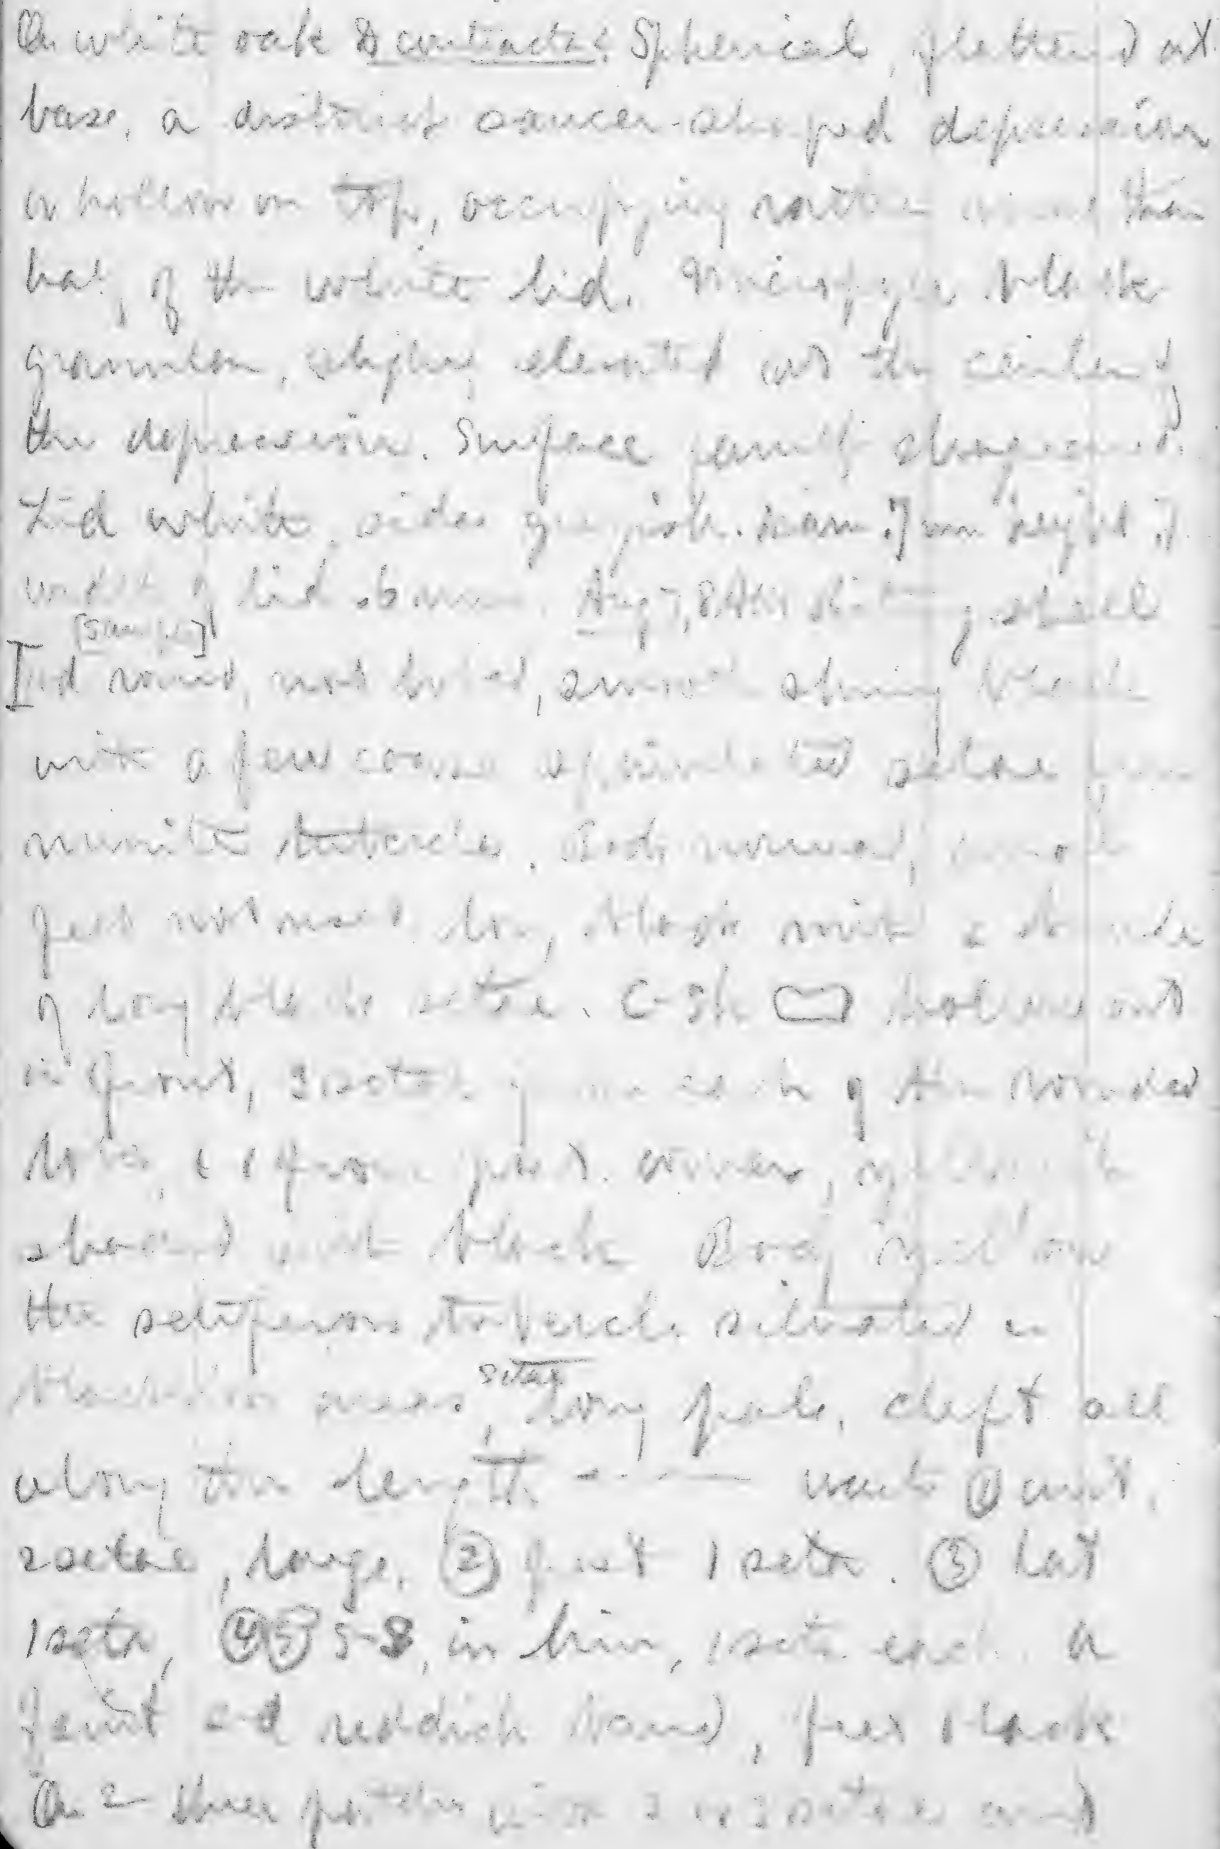 On white oak D contracta. Spherical, flattened at
base, a distinct saucer-shaped depression
or hollow on top, occupying rather more than
half of the white lid. Micropyle black
granular, slightly elevated at the center of
the depression. Surface faintly shagreened.
Lid white, sides greyish. Diam .7 mm height .7
width of lid .6 mm. Aug 7, 8 AM eating shell
I Hd round, not lobed, smooth shiny black
with a few coarse setae from
minute tubercles. Body normal, smooth
feet not used, black with a
of long black setae. C-Sh hollowed out
in front, 3 setae from each of the rounded
lobes, & 1 from post. corner, yellowish
shaded with black Body yellow
the setiferous tubercles situated in
blackish areas, setae long pale, cleft all
along the length warts ① ant.
2 setae, large, ② post 1 seta. ③ lat
1 seta, ④ ⑤ 5-8, in line, 1 seta each. A
faint reddish band, feet black
On 2 three patches with 2 or 3 setae and